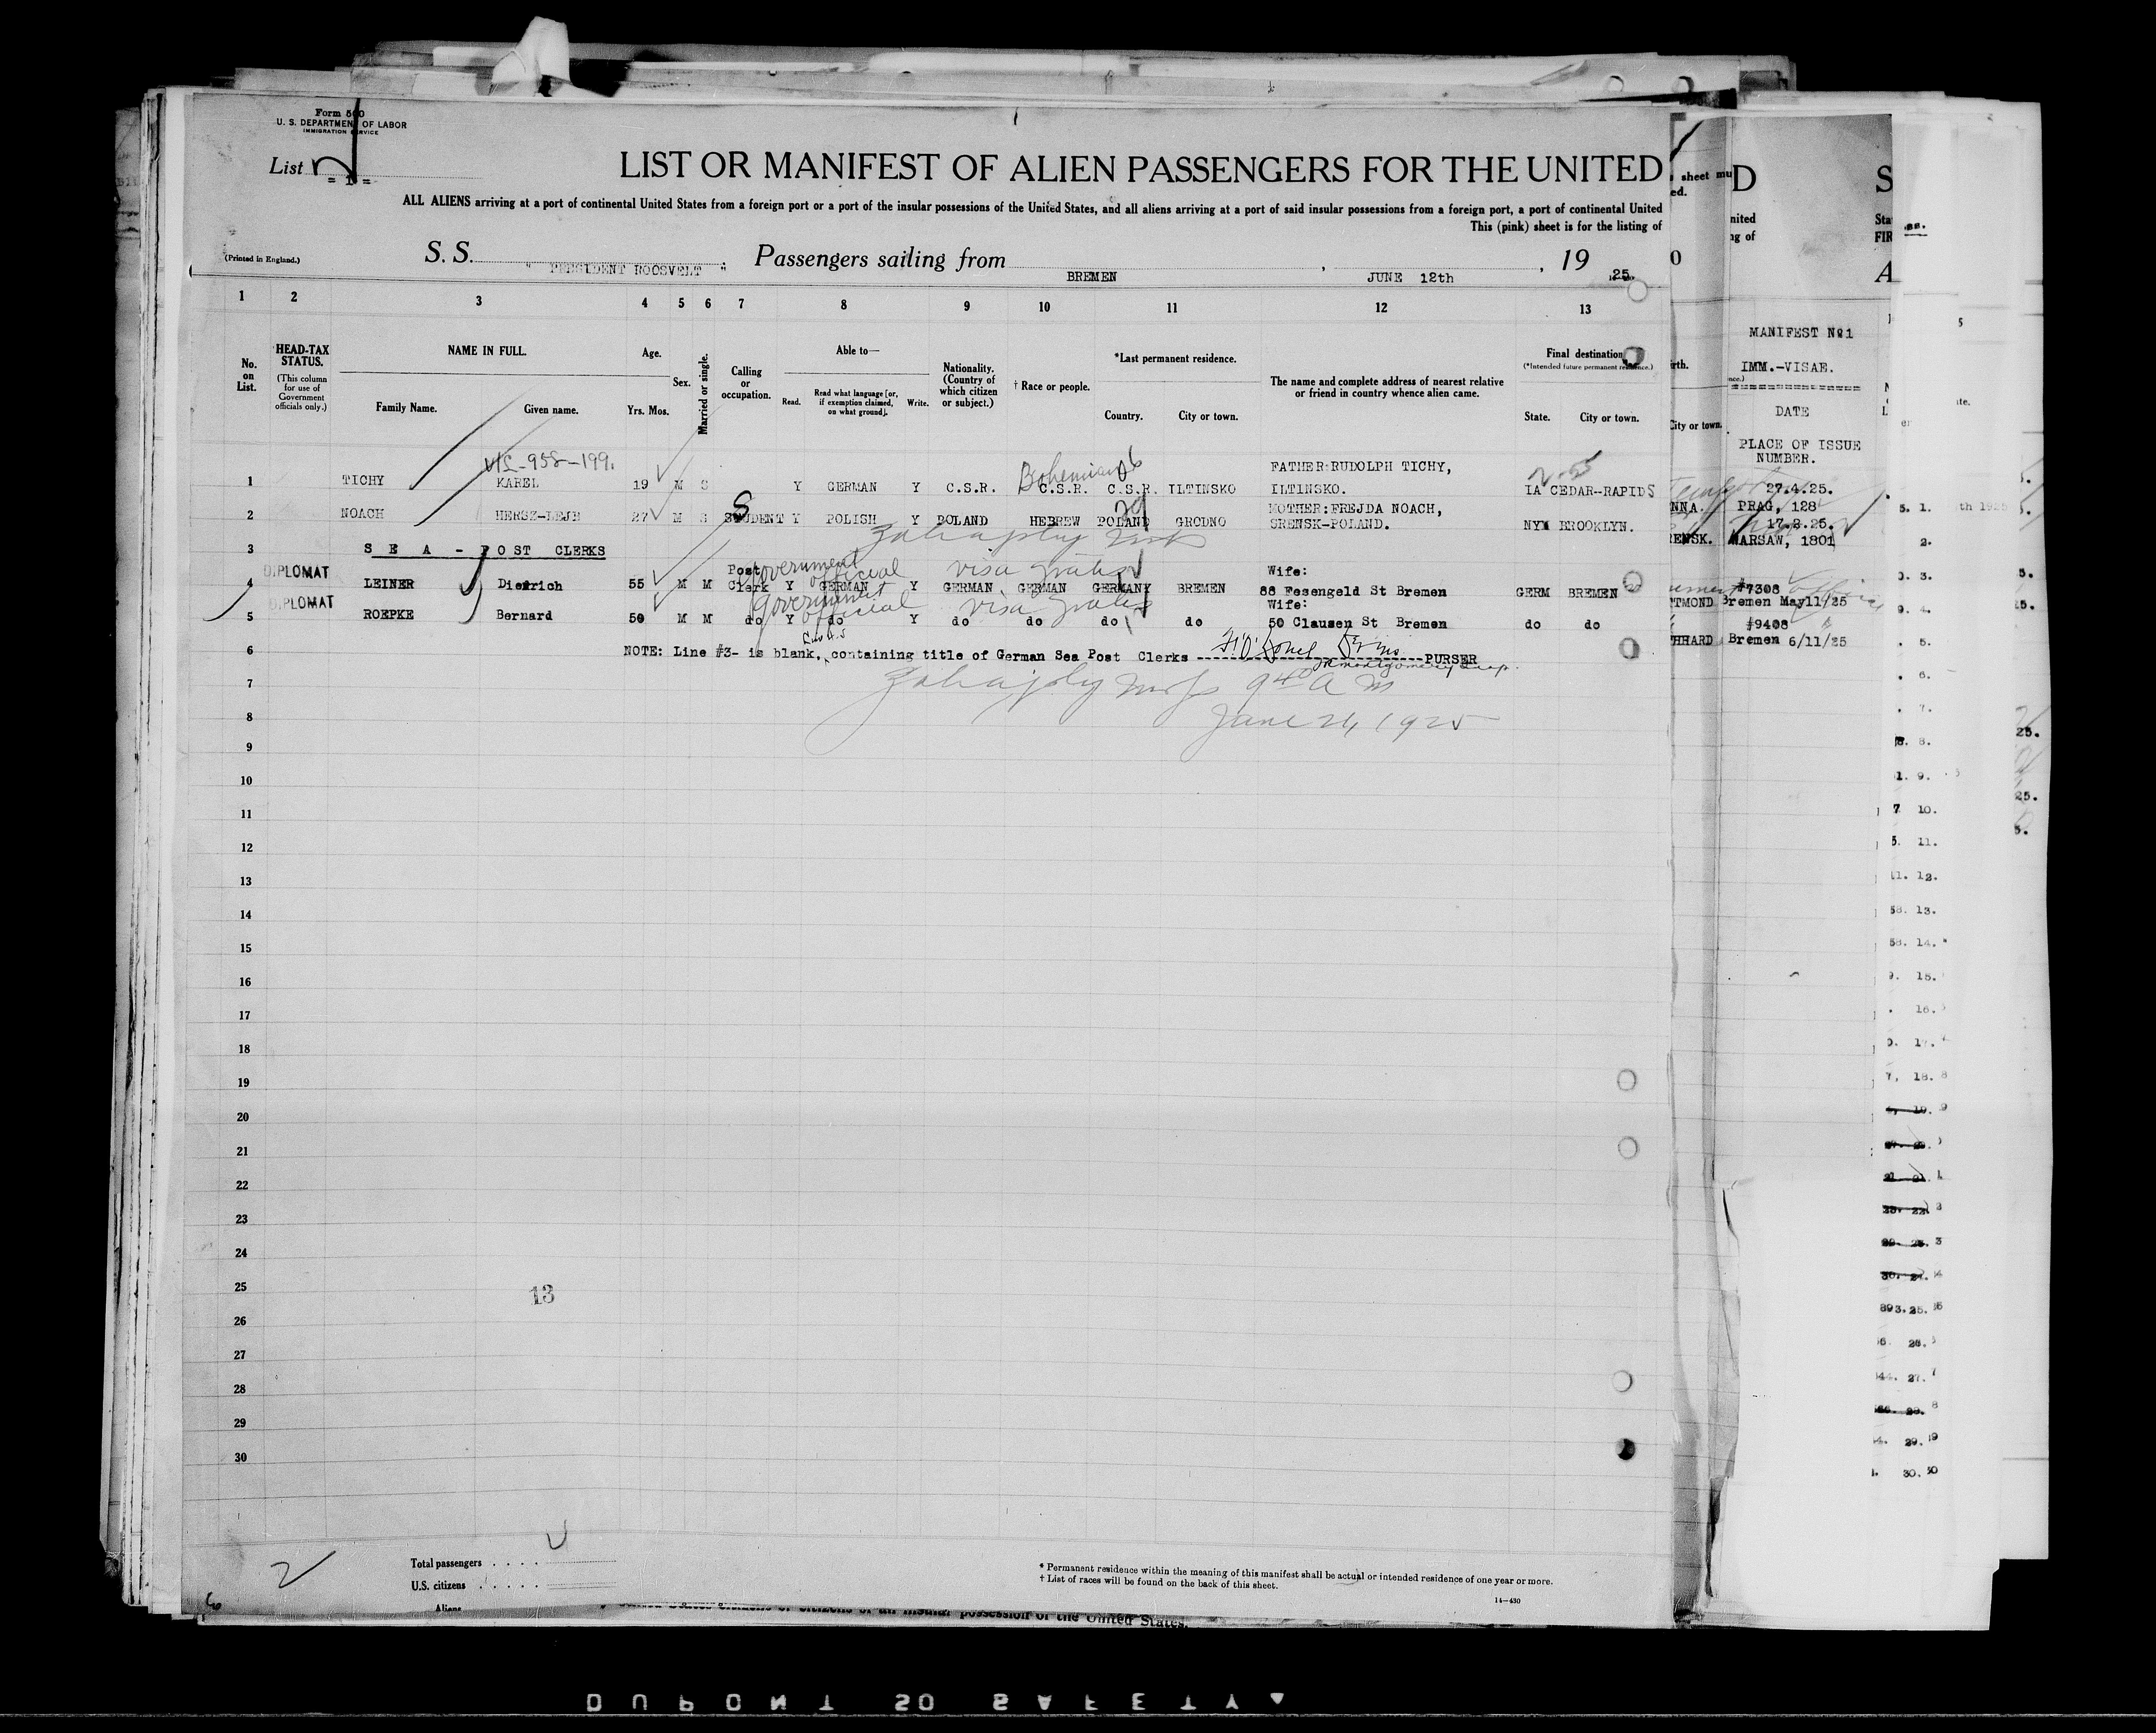 Form 500
U. S. DEPARTMENT OF LABOR
IMMIGRATION SERVICE
List
= 1 =
LIST OR MANIFEST OF ALIEN PASSENGERS FOR THE UNITED
ALL ALIENS arriving at a port of continental United States from a foreign port or a port of the insular possessions of the United States, and all aliens arriving at a port of said insular possessions from a foreign port, a port of continental United
This (pink) sheet is for the listing of
(Printed in England.)
S. S. " PRESIDENT ROOSVELT " Passengers sailing from BREMEN, JUNE 12th, 19 25.
1 2 3 4 5 6 7 8 9 10 11 12 13
No. on List.
HEAD-TAX STATUS.
(This column for use of Government officials only.)
NAME IN FULL.
Family Name. Given name.
Age.
Yrs. Mos.
Sex.
Married or single.
Calling or occupation.
Able to—
Read. Read what language [or, if exemption claimed, on what ground]. Write.
Nationality. (Country of which citizen or subject.)
† Race or people.
*Last permanent residence.
Country. City or town.
The name and complete address of nearest relative or friend in country whence alien came.
Final destination
(*Intended future permanent residence.)
State. City or town.
MANIFEST No1
IMM.-VISAE.
DATE
PLACE OF ISSUE
NUMBER.
VIL-958-199.
Bohemian
1 TICHY KAREL 19 M S Y GERMAN Y C.S.R. C.S.R. C.S.R. ILTINSKO FATHER:RUDOLPH TICHY, ILTINSKO. IA CEDAR-RAPIDS
27.4.25.
PRAG, 128
2 NOACH HERSZ-LEJB 27 M S STUDENT Y POLISH Y POLAND HEBREW POLAND GRODNO MOTHER:FREJDA NOACH, SRENSK-POLAND. NY BROOKLYN.
17.2.25.
WARSAW, 1801
3 SEA - POST CLERKS
DIPLOMAT
Government official visa gratis
4 LEINER Dietrich 55 M M Post Clerk Y GERMAN Y GERMAN GERMAN GERMANY BREMEN Wife: 88 Fesengeld St Bremen GERM BREMEN
#7308
Bremen May11/25
DIPLOMAT
Government official visa gratis
5 ROEPKE Bernard 50 M M do Y do Y do do do do Wife: 50 Clausen St Bremen do do
#9408
Bremen 6/11/25
6 NOTE: Line #3- is blank, containing title of German Sea Post Clerks PURSER
7
9 40 A M
8
June 21, 1925
9
10
11
12
13
14
15
16
17
18
19
20
21
22
23
24
25
13
26
27
28
29
30
2
Total passengers
U.S. citizens
Aliens
* Permanent residence within the meaning of this manifest shall be actual or intended residence of one year or more.
† List of races will be found on the back of this sheet.
14—430
possession of the United States.
DUPONT SO SAFETY